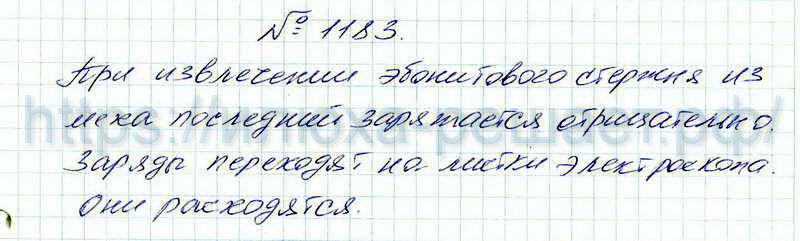 № 1183.
При извлечении эбонитового стержня из
меха последний заряжается отрицательно.
Заряды переходят на листки электроскопа.
Они расходятся.